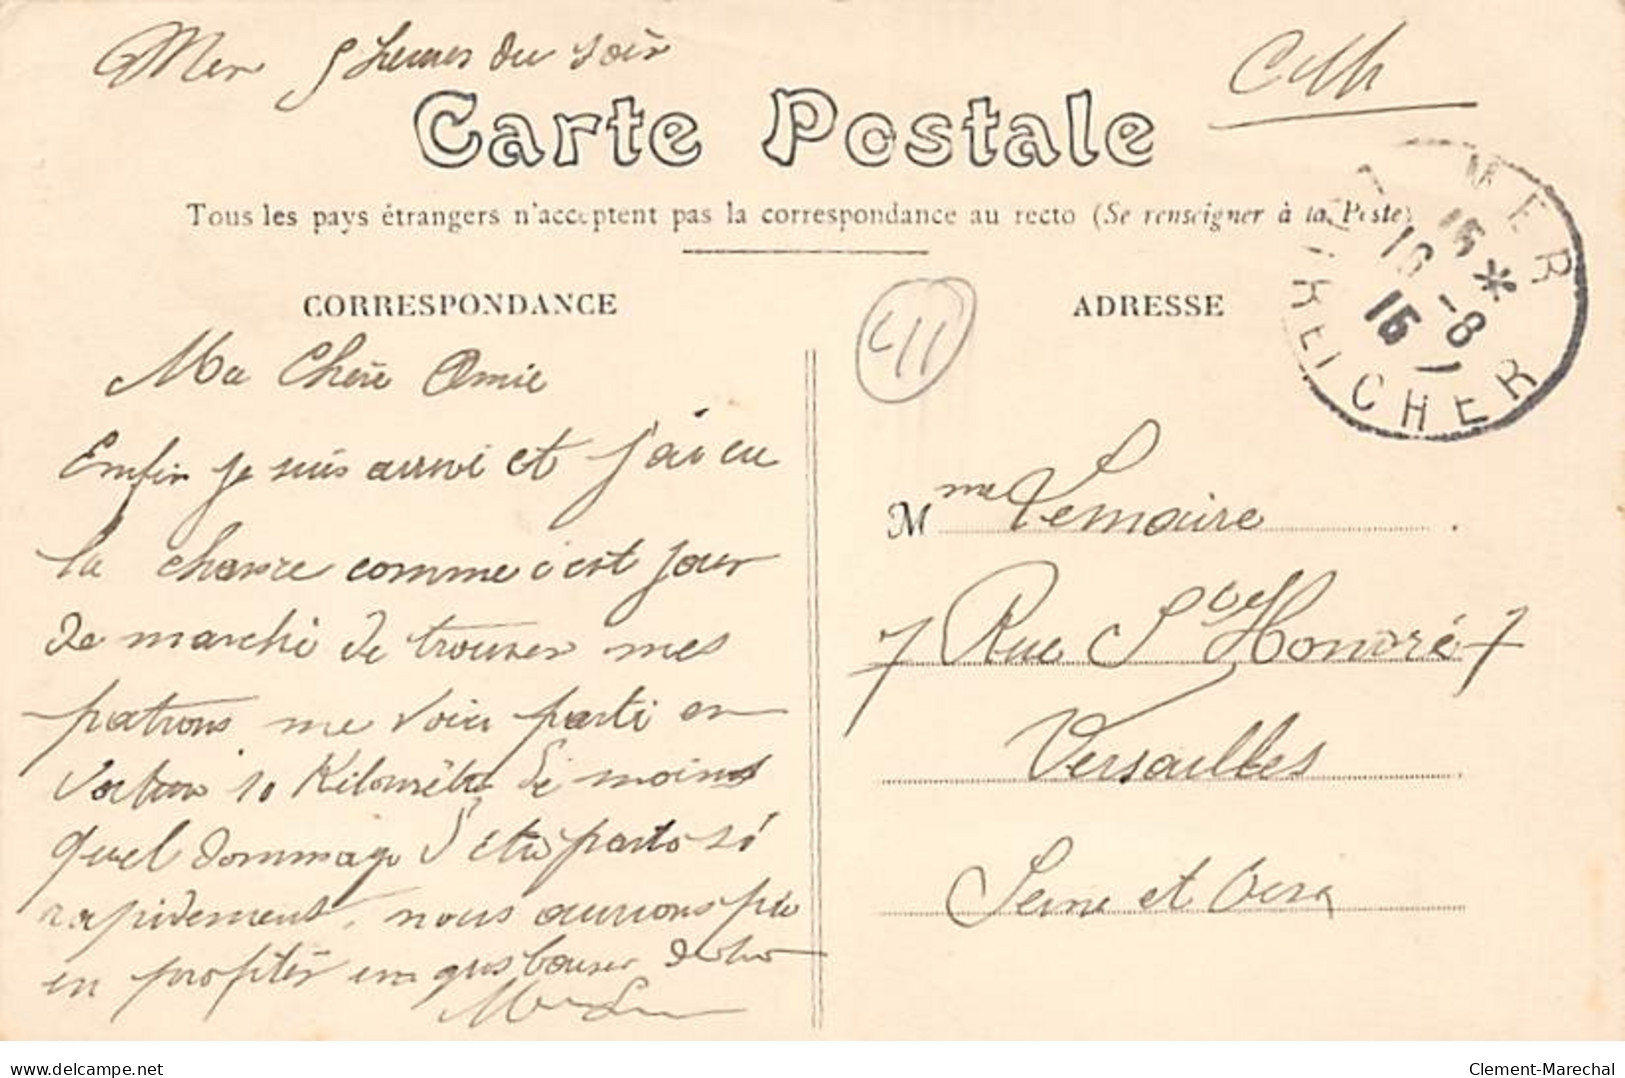 Mer 5 heures du soir
Carte Postale
Tous les pays étrangers n'acceptent pas la correspondance au recto (Se renseigner à la Poste)
CORRESPONDANCE
Ma Chère Amie
Enfin je suis arrivé et j'ai eu
la chance comme c'est jour
de marché de trouver mes
patrons me voici parti en
voiture 10 Kilomètre de moins
quel dommage d'être parti si
rapidement, nous aurions pu
en profiter un gros baiser de ton
411
ADRESSE
Mme Lemaire
7 Rue Ste Honoré 7
Versailles
Seine et Oise
MER
LOIR-ET-CHER
15 *
16 -8
15
delcampe.net
Clement-Marechal